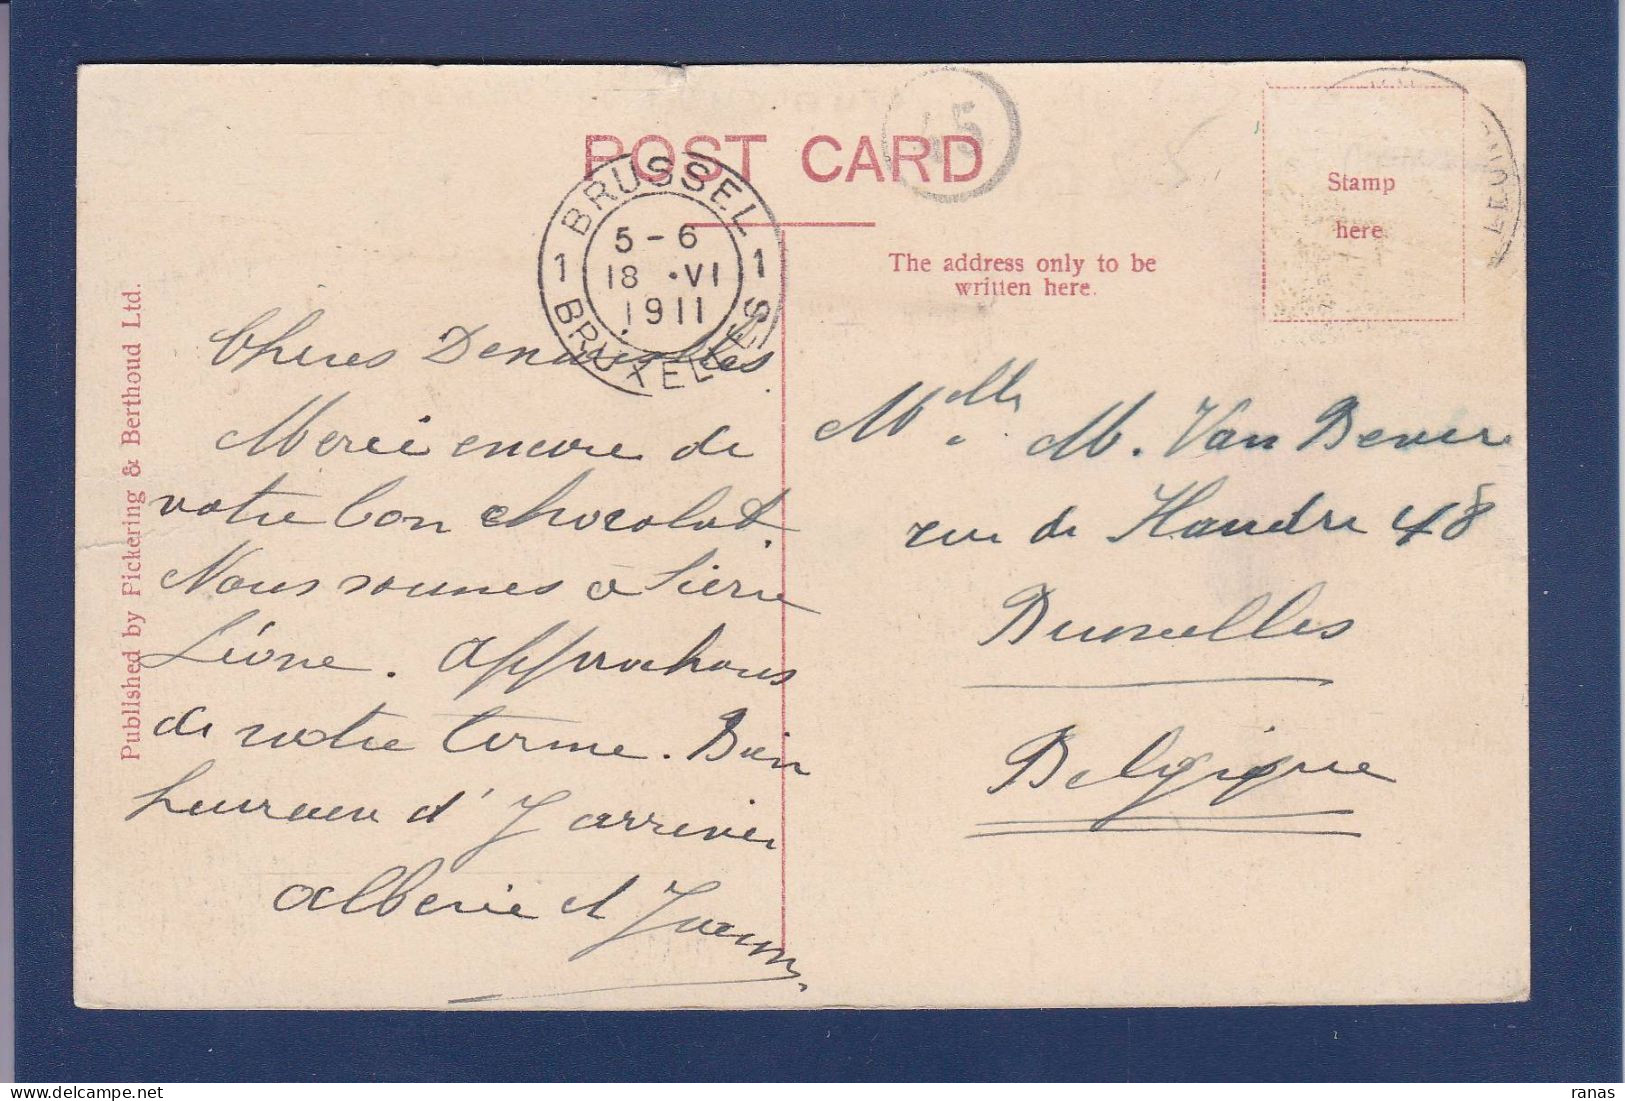 POST CARD
45
BRUSSEL
1 5-6 1
18 ·VI
1911
BRUXELLES
Stamp
here.
The address only to be
written here.
Published by Pickering & Berthoud Ltd.
Chères Demoiselles
Merci encore de
votre bon chocolat.
Nous sommes à Sierra
Léone. Approchons
de notre terme. Bien
heureux d'y arriver
Alberic et
Melle M. Van Bever
rue de Flandre 48
Bruxelles
Belgique
ranas